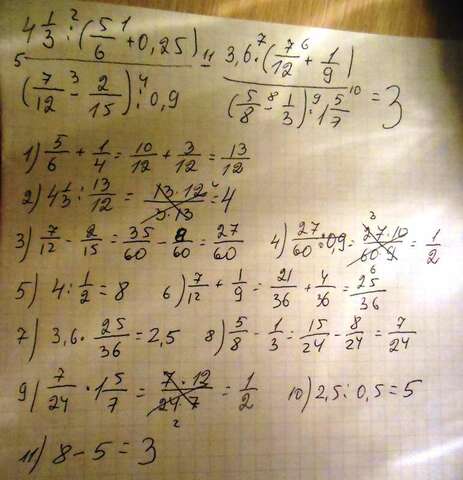 4 1/3 :² (5/6 +¹ 0,25) 3,6 ·⁷ (7/12 +⁶ 1/9)
5 — 11 — 10 = 3
(7/12 -³ 2/15) :⁴ 0,9 (5/8 -⁸ 1/3) ·⁹ 1 5/7
1) 5/6 + 1/4 = 10/12 + 3/12 = 13/12
2) 4 1/3 : 13/12 = 13·12/3·13 = 4
3) 7/12 - 2/15 = 35/60 - 8/60 = 27/60 4) 27/60 : 0,9 = 27·10/60·9 = 1/2
5) 4 : 1/2 = 8 6) 7/12 + 1/9 = 21/36 + 4/36 = 25/36
7) 3,6 · 25/36 = 2,5 8) 5/8 - 1/3 = 15/24 - 8/24 = 7/24
9) 7/24 · 1 5/7 = 7·12/24·7 = 1/2 10) 2,5 : 0,5 = 5
11) 8 - 5 = 3